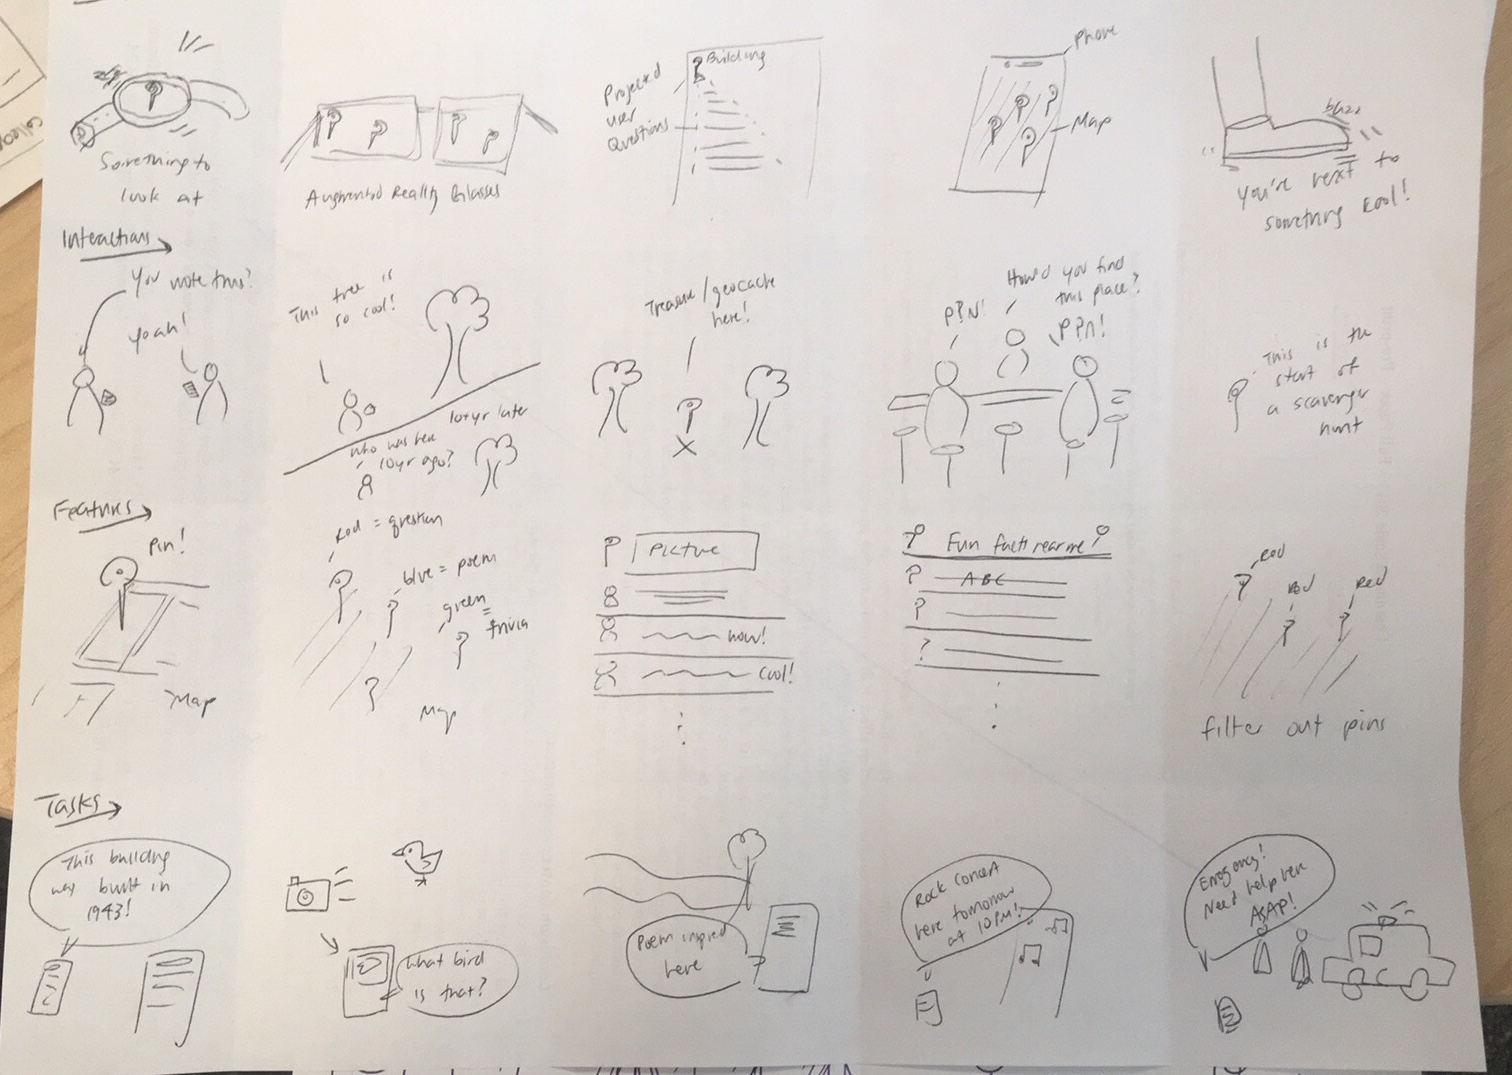 Something to
look at
Augmented Reality Glasses
Projected
user
Questions
Building
Phone
Map
buzz
You're next to
something cool!
Interactions
You wrote this?
Yeah!
This tree is
so cool!
10+yr later
who was here
10yr ago?
Treasure/geocache
here!
P?N!
How'd you find
this place?
P?n!
This is the
start of
a scavenger
hunt
Features
Pin!
Map
Red = question
blue = poem
green
=
trivia
Map
Picture
wow!
cool!
Fun facts near me
ABC
Red
Red
Red
filter out pins
Tasks
This building
was built in
1943!
What bird
is that?
Poem inspired
here
Rock Concert
here tomorrow
at 10PM!
Need help here
ASAP!